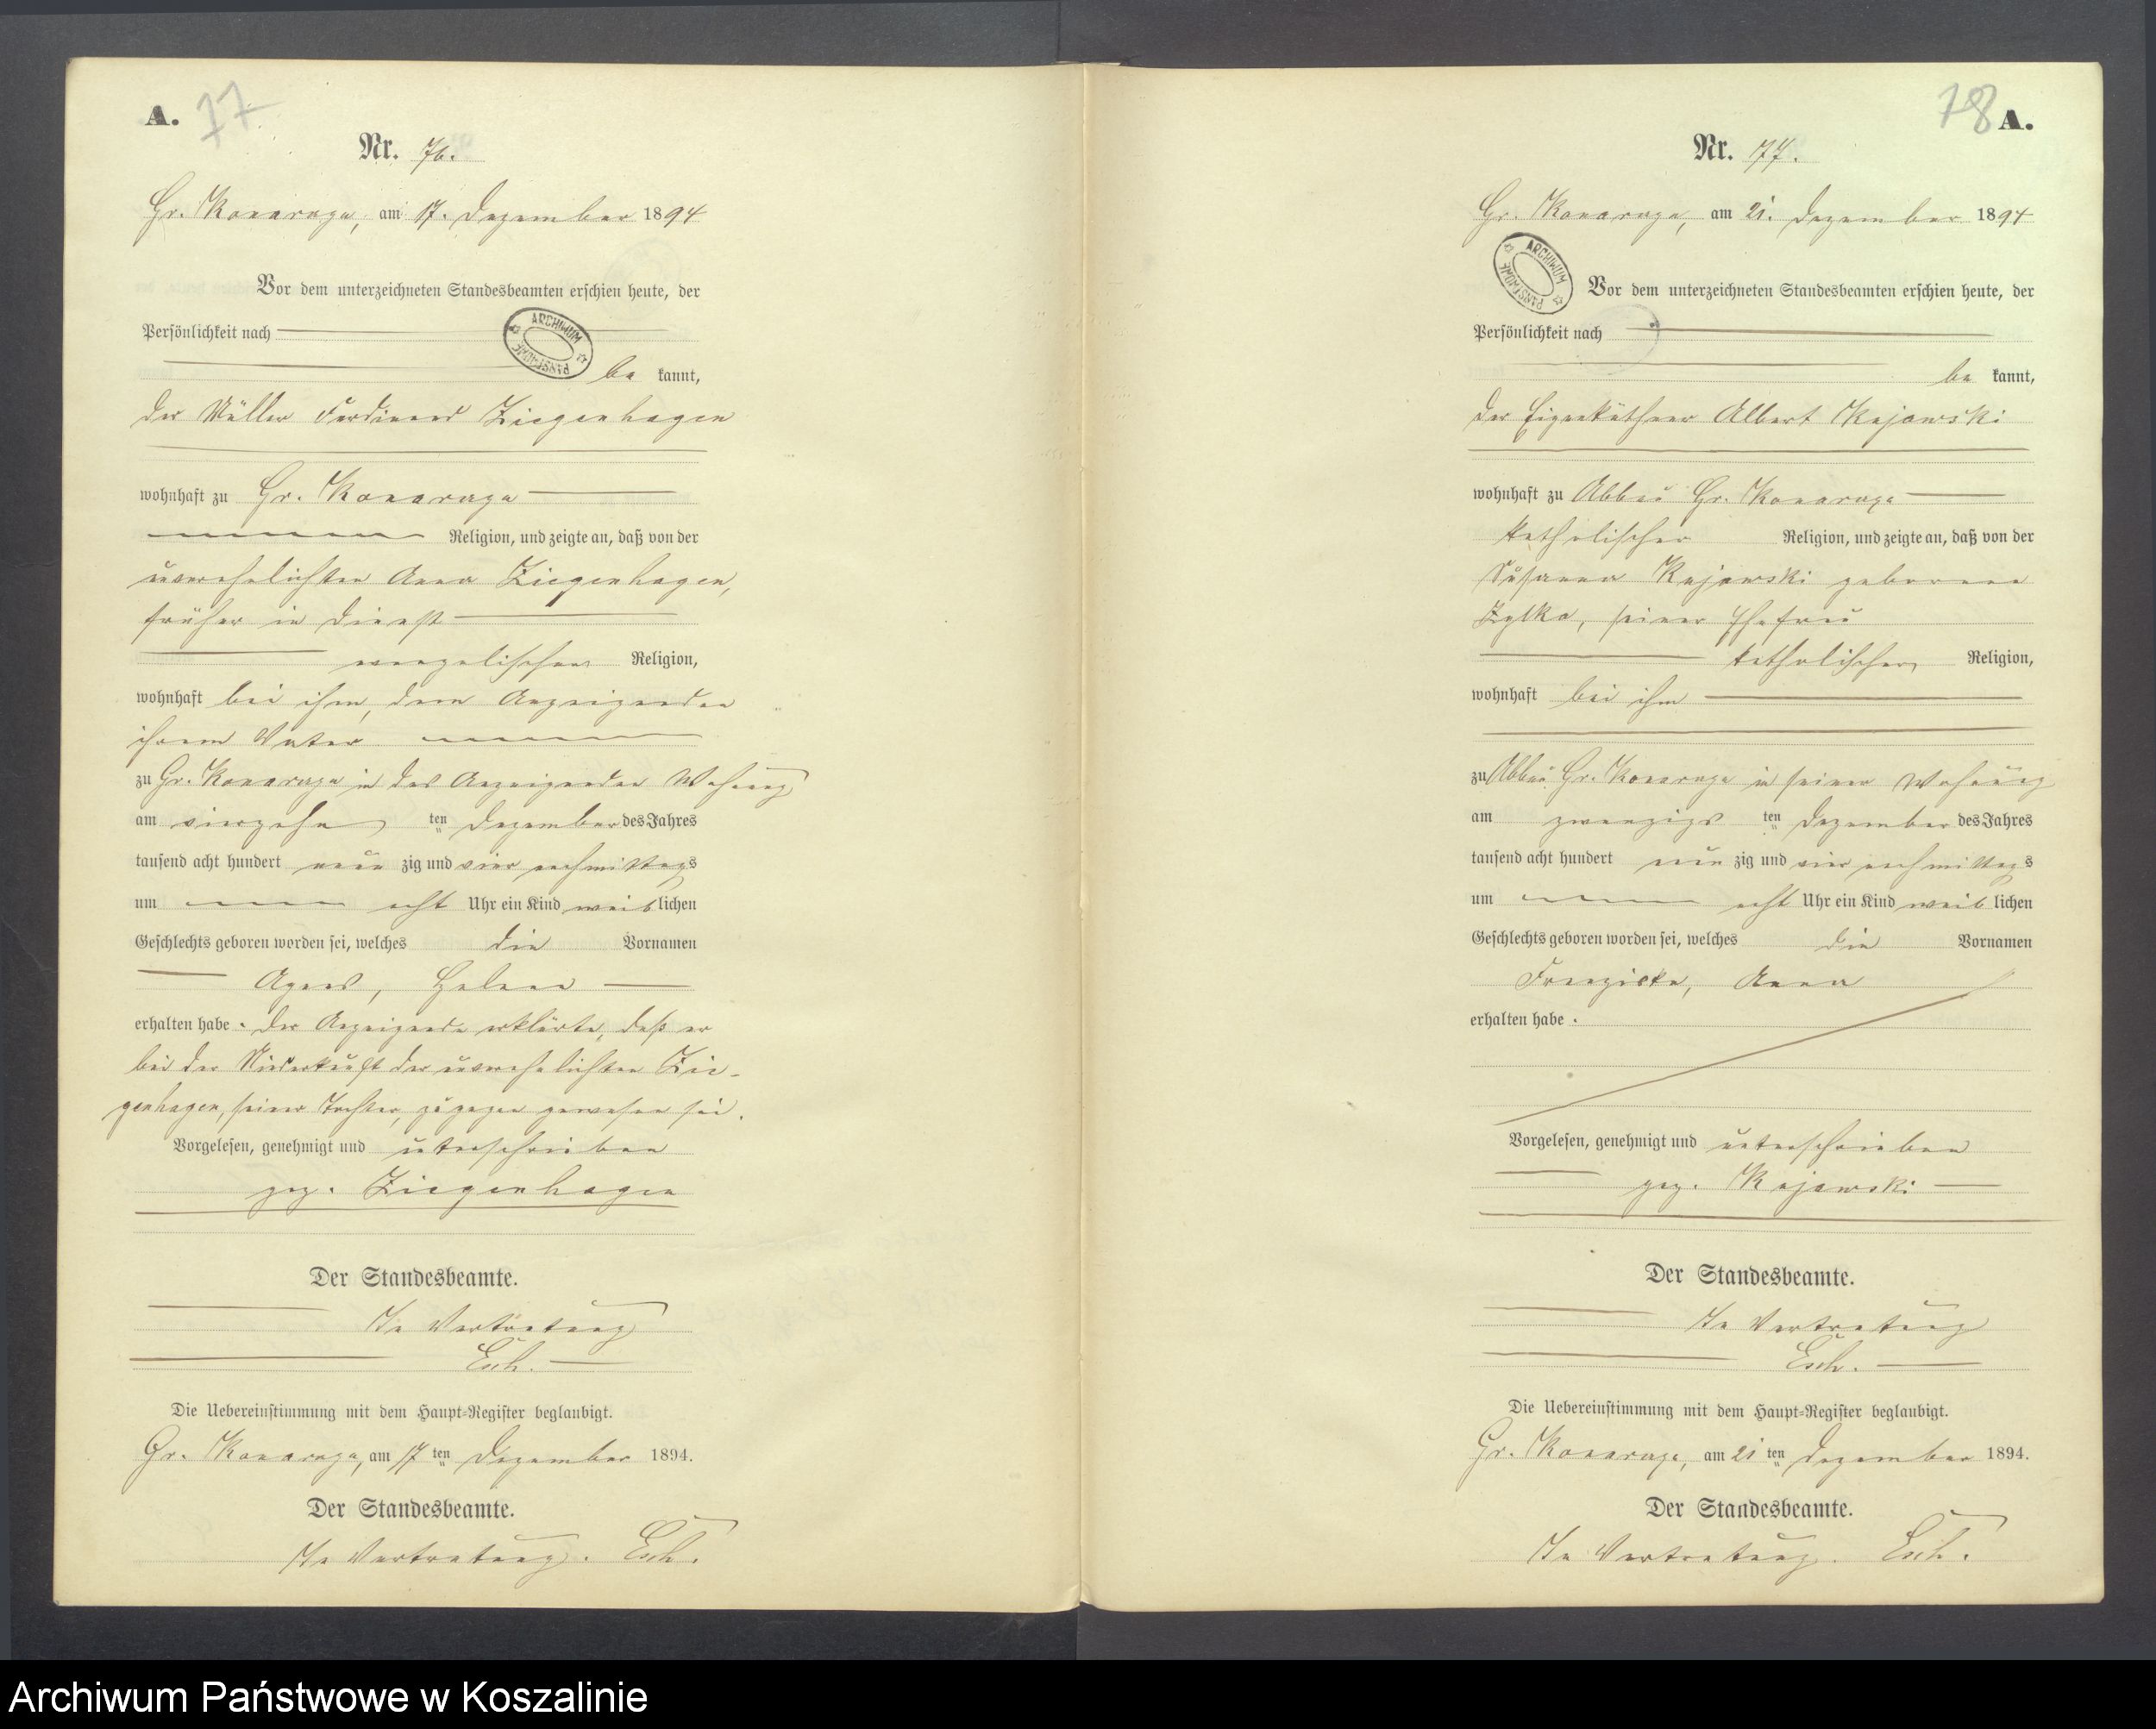 A. 77
Nr. 76.
Gr. Konarczyn, am 17. Dezember 1894
Vor dem unterzeichneten Standesbeamten erschien heute, der
Persönlichkeit nach
be kannt,
der Müller Ferdinand Ziegenhagen
wohnhaft zu Gr. Konarczyn
Religion, und zeigte an, daß von der
unverehelichten Anna Ziegenhagen,
früher in Dienst
evangelischer Religion,
wohnhaft bei ihm, dem Anzeigenden
ihrem Vater
zu Gr. Konarczyn in des Anzeigenden Wohnung
am vierzehn ten Dezember des Jahres
tausend acht hundert neun zig und vier nachmittags
um acht Uhr ein Kind weib lichen
Geschlechts geboren worden sei, welches die Vornamen
Agnes, Helene
erhalten habe. Der Anzeigende erklärte, daß er
bei der Niederkunft der unverehelichten Zie-
genhagen, seiner Tochter, zugegen gewesen sei.
Vorgelesen, genehmigt und unterschrieben
gez. Ziegenhagen
Der Standesbeamte.
In Vertretung
Esch.
Die Uebereinstimmung mit dem Haupt-Register beglaubigt.
Gr. Konarczyn, am 17 ten Dezember 1894.
Der Standesbeamte.
In Vertretung. Esch.
ARCHIWUM PAŃSTWOWE
78 A.
Nr. 77.
Gr. Konarczyn, am 21. Dezember 1894
ARCHIWUM PAŃSTWOWE
Vor dem unterzeichneten Standesbeamten erschien heute, der
Persönlichkeit nach
be kannt,
der Eigenkäthner Albert Kajowski
wohnhaft zu Abbau Gr. Konarczyn
katholischer Religion, und zeigte an, daß von der
Susanna Kajowski geborene
Zylka, seiner Ehefrau
katholischer Religion,
wohnhaft bei ihm
zu Abbau Gr. Konarczyn in seiner Wohnung
am zwanzigs ten Dezember des Jahres
tausend acht hundert neun zig und vier nachmittags
um acht Uhr ein Kind weib lichen
Geschlechts geboren worden sei, welches die Vornamen
Franziska, Anna
erhalten habe.
Vorgelesen, genehmigt und unterschrieben
gez. Kajowski
Der Standesbeamte.
In Vertretung
Esch.
Die Uebereinstimmung mit dem Haupt-Register beglaubigt.
Gr. Konarczyn, am 21 ten Dezember 1894.
Der Standesbeamte.
In Vertretung. Esch.
Archiwum Państwowe w Koszalinie